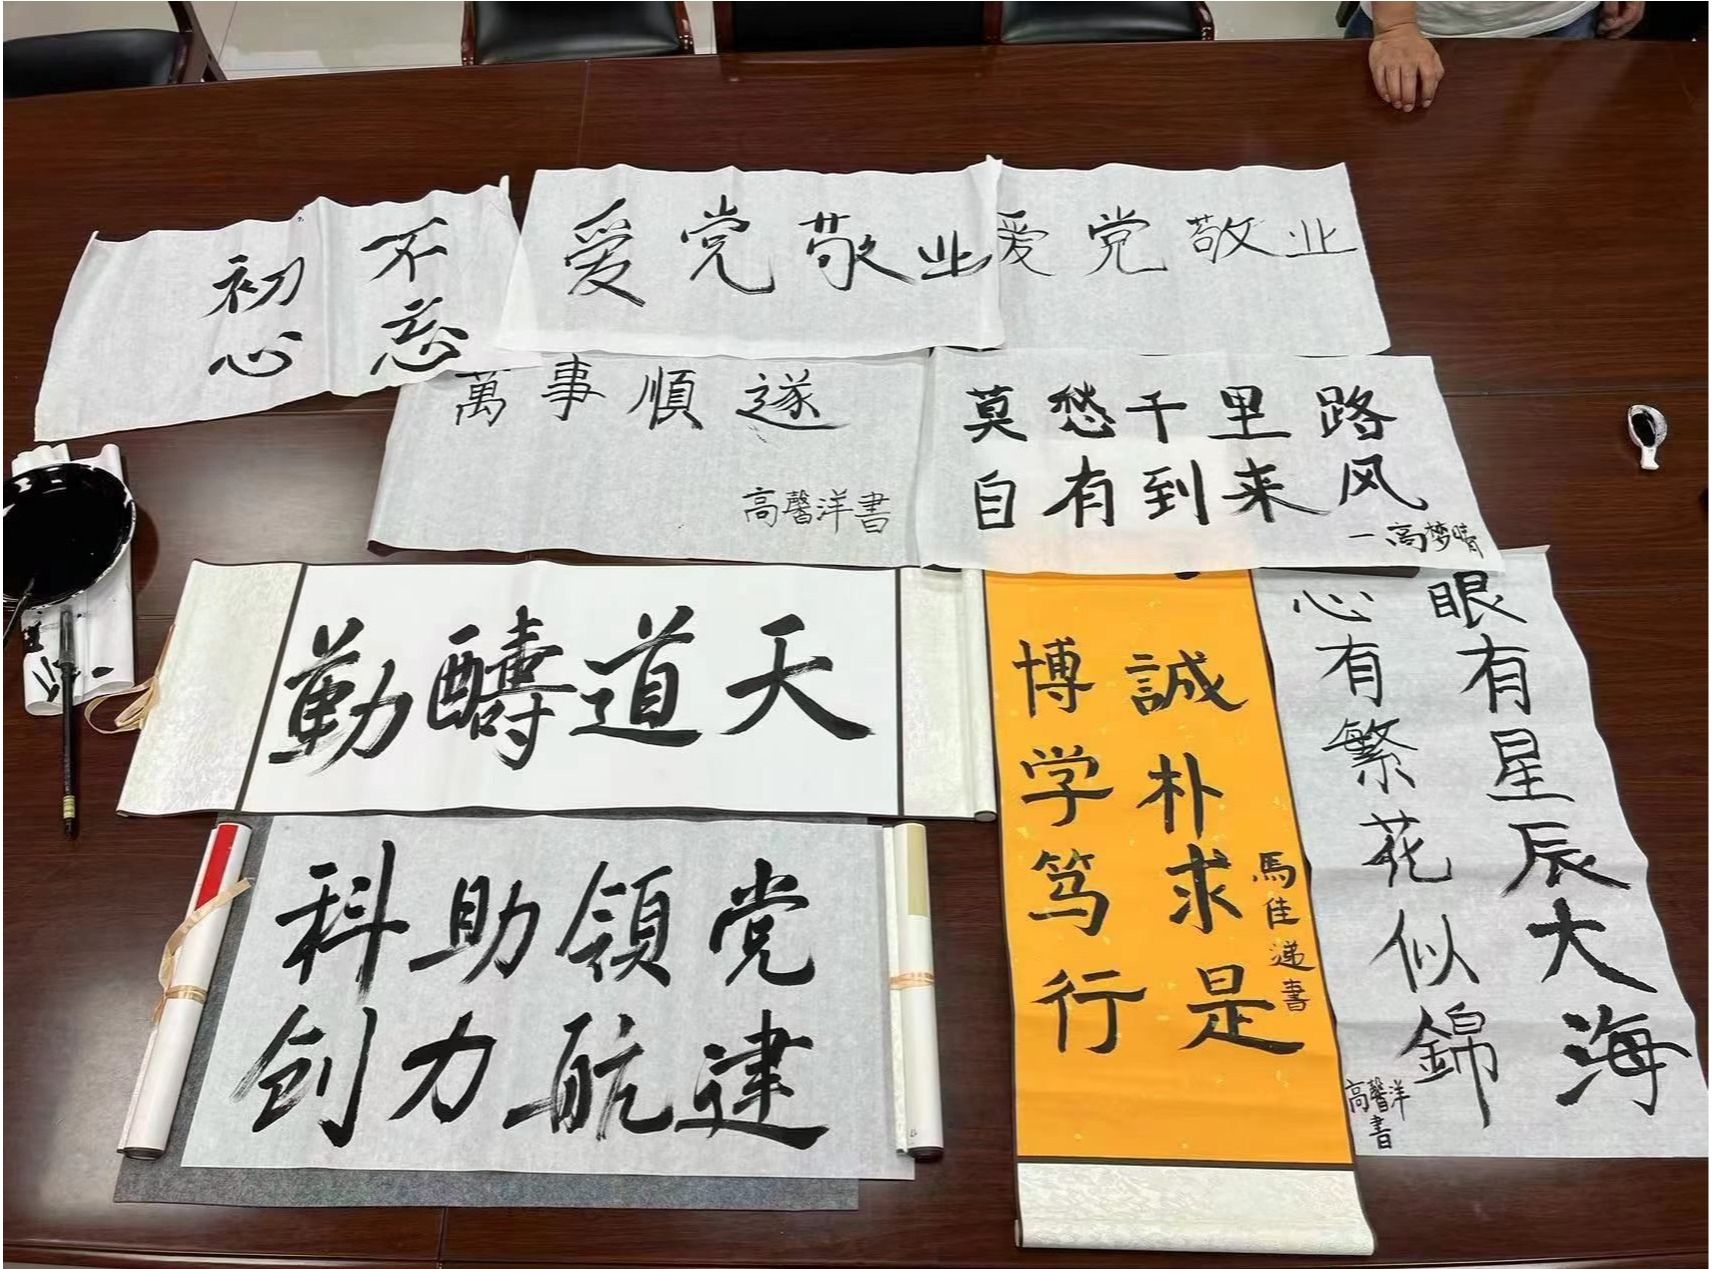 不忘
初心
爱党敬业
爱党敬业
萬事順遂
高馨洋書
莫愁千里路
自有到来风
一高梦晴
天道酬勤
誠朴求是
博学笃行
馬佳递書
眼有星辰大海
心有繁花似錦
高馨洋
書
党建
領航
助力
科创